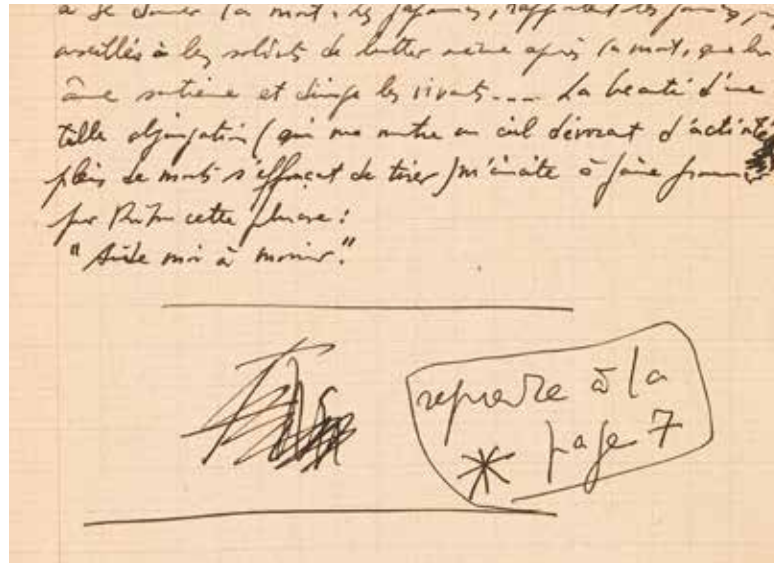 à se donner la mort. Les Japonais, rapportent les journaux,
conseillés à les soldats de lutter même après la mort, que leur
âme soutienne et dirige les vivants.... La beauté d'une
telle objurgation (qui me montre un ciel dévorant d'activité
plein de morts s'efforçant de tirer) m'incite à faire prononcer
par Riton cette phrase :
"Aide moi à mourir."
reprendre à la
* page 7